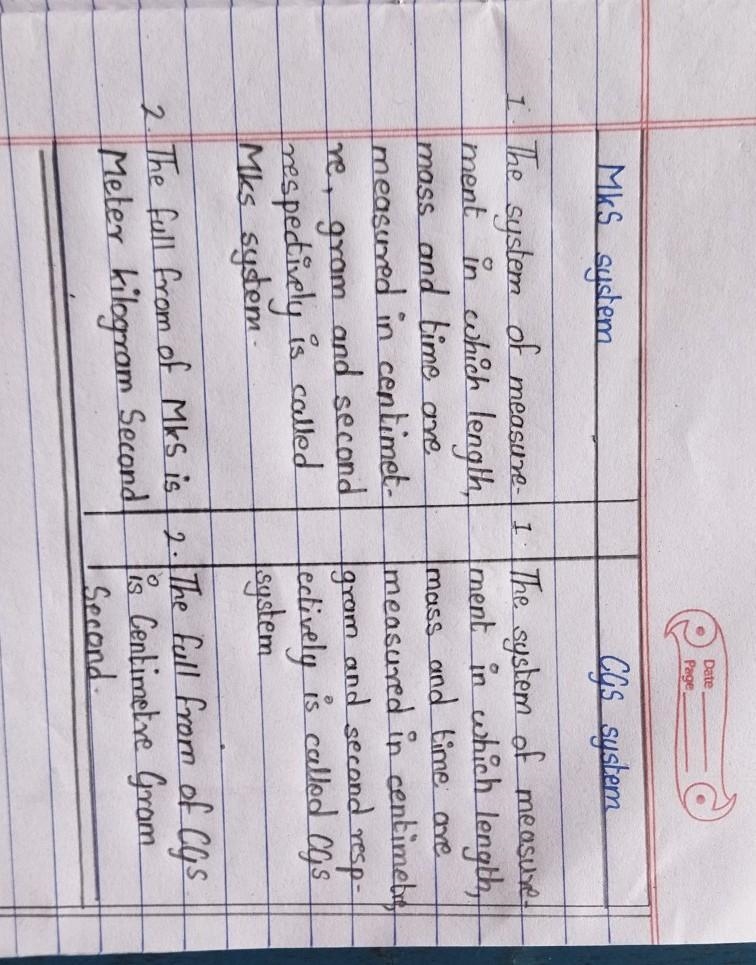 Date
Page
MkS system
1. The system of measure-
ment in which length,
mass and time are
measured in centimet-
re, gram and second
respectively is called
Mks system.
2. The full from of Mks is
Meter kilogram Second
CGS system
1. The system of measure-
ment in which length,
mass and time are
measured in centimetre,
gram and second resp-
ectively is called CGS
system
2. The full from of CGS
is Centimetre Gram
Second.